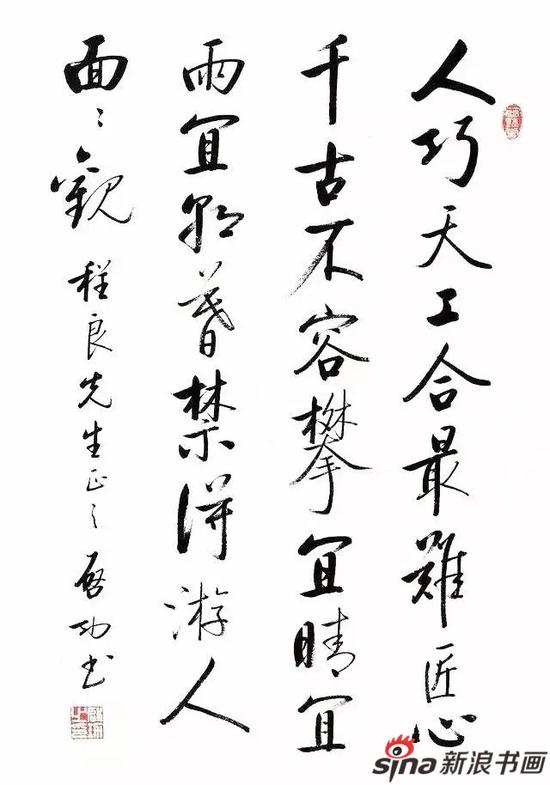 人巧天工合最難匠心
千古不容攀宜晴宜
雨宜朝暮禁得游人
面〻觀
程良先生正之 啓功书
sina新浪书画